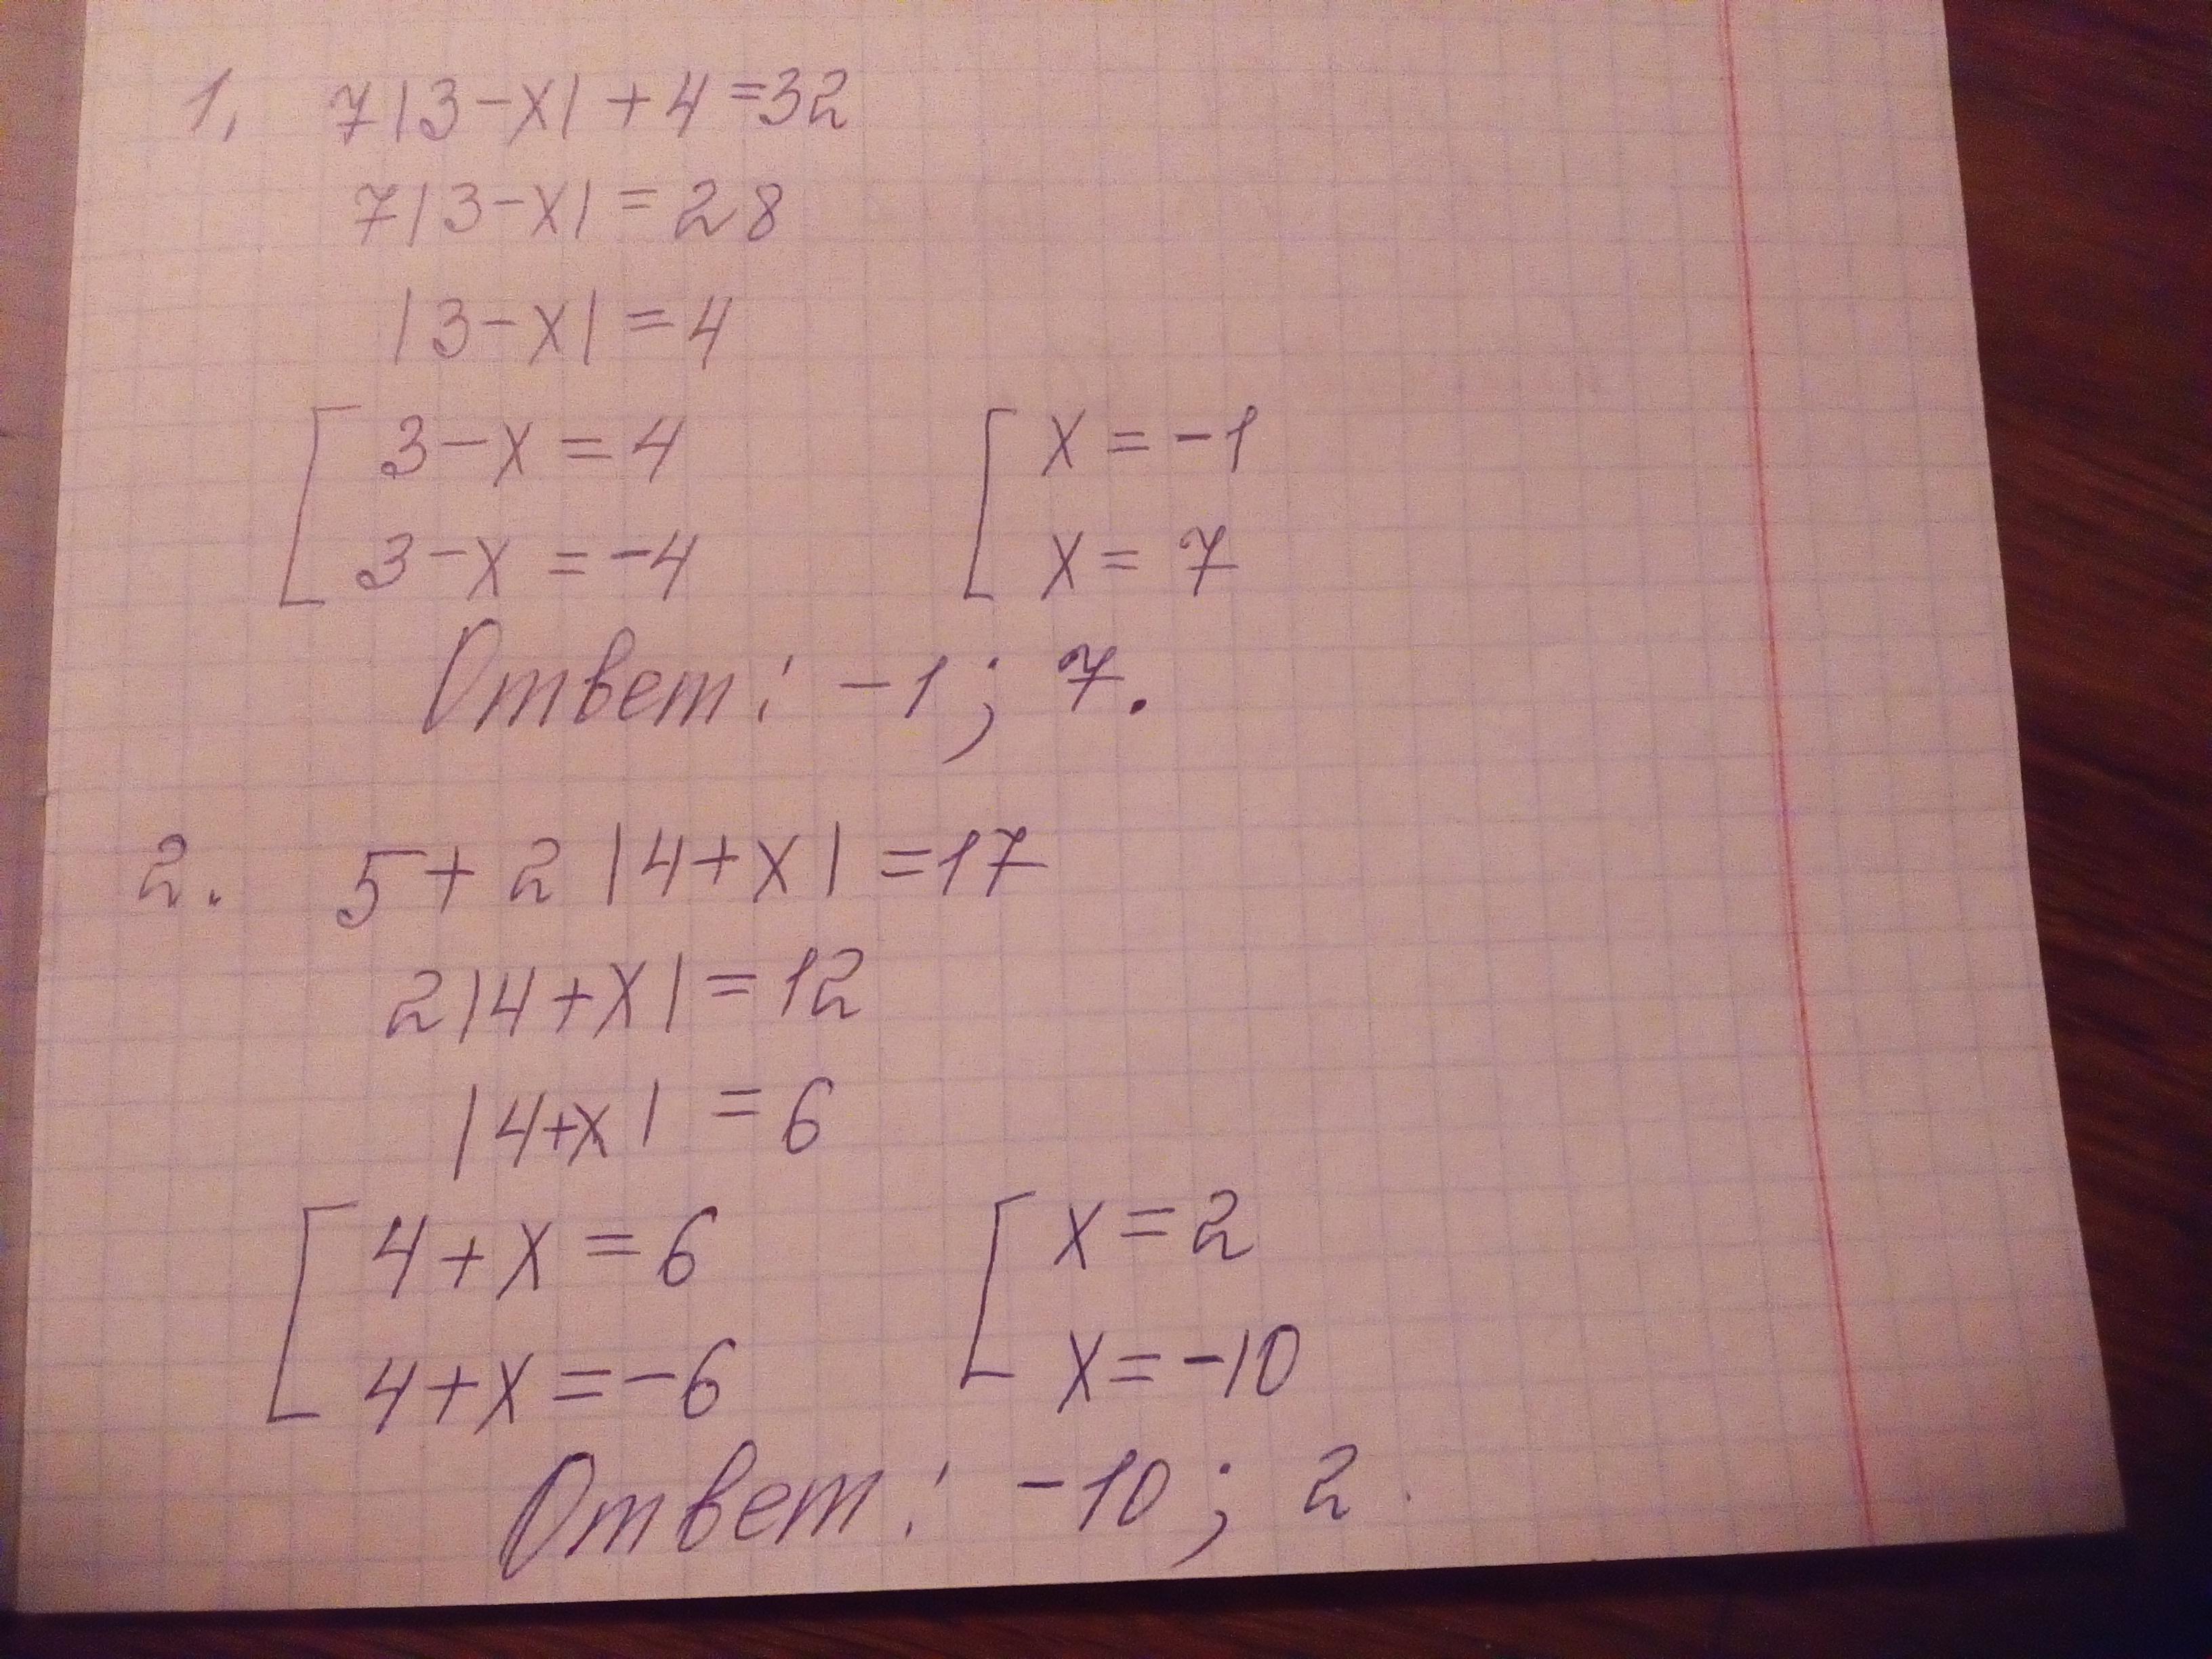 1. 7|3-x|+4=32
7|3-x|=28
|3-x|=4
[ 3-x=4 [ x=-1
3-x=-4 x=7
Ответ: -1; 7.
2. 5+2|4+x|=17
2|4+x|=12
|4+x|=6
[ 4+x=6 [ x=2
4+x=-6 x=-10
Ответ: -10; 2.